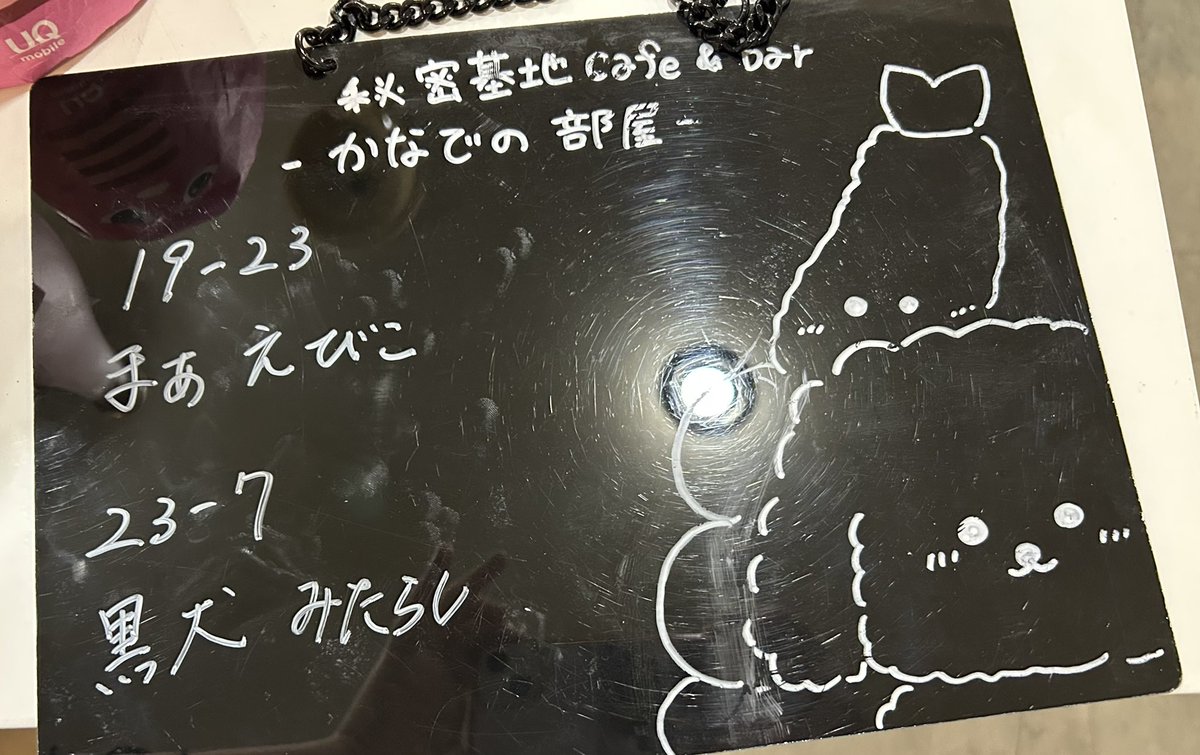 UQ
mobile
秘密基地 Cafe & Bar
-かなでの部屋-
19-23
手あ えびこ
23-7
黒犬 みたらし